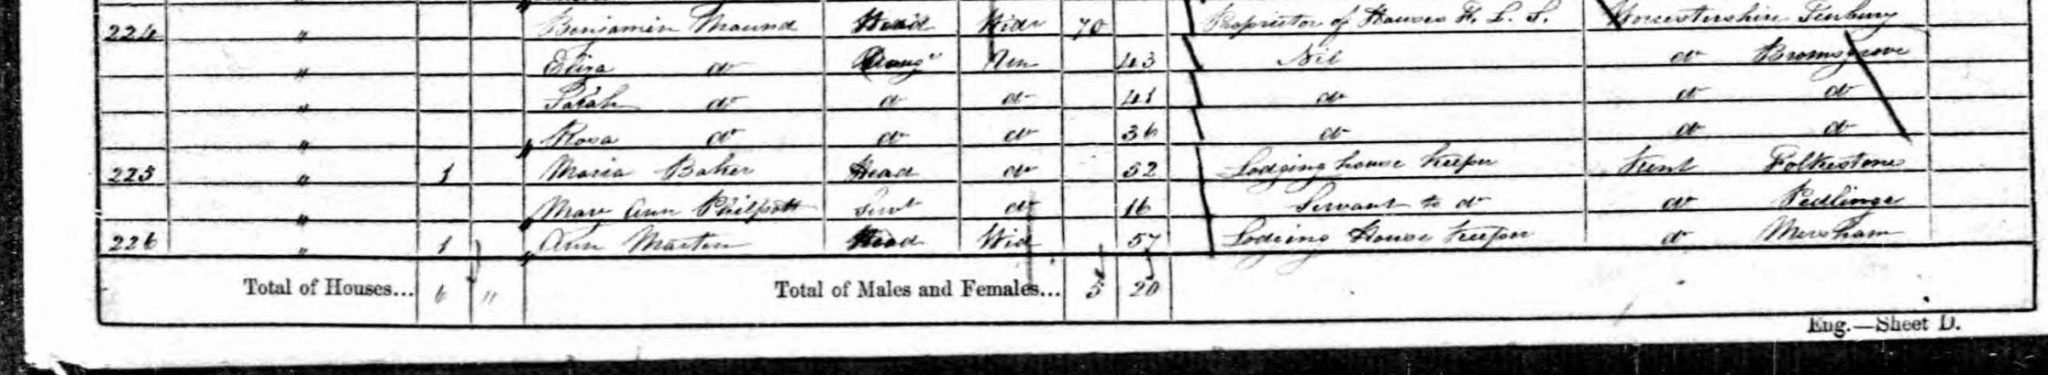 224 " Benjamin Maund Head Widr 70 Proprietor of Houses F. L. S. Worcestershire Tenbury
" Eliza do Daugr Un 43 Nil do Bromsgrove
" Sarah do do do 41 do do do
" Rosa do do do 36 do do do
225 " 1 Maria Baker Head do 52 Lodging house keeper Kent Folkestone
" Mary Ann Philpott Servt do 16 Servant to do do Pedlinge
226 " 1 Ann Martin Head Wid 57 Lodging House keeper do Mersham
Total of Houses... 6 " Total of Males and Females... 5 20
Eng.—Sheet D.